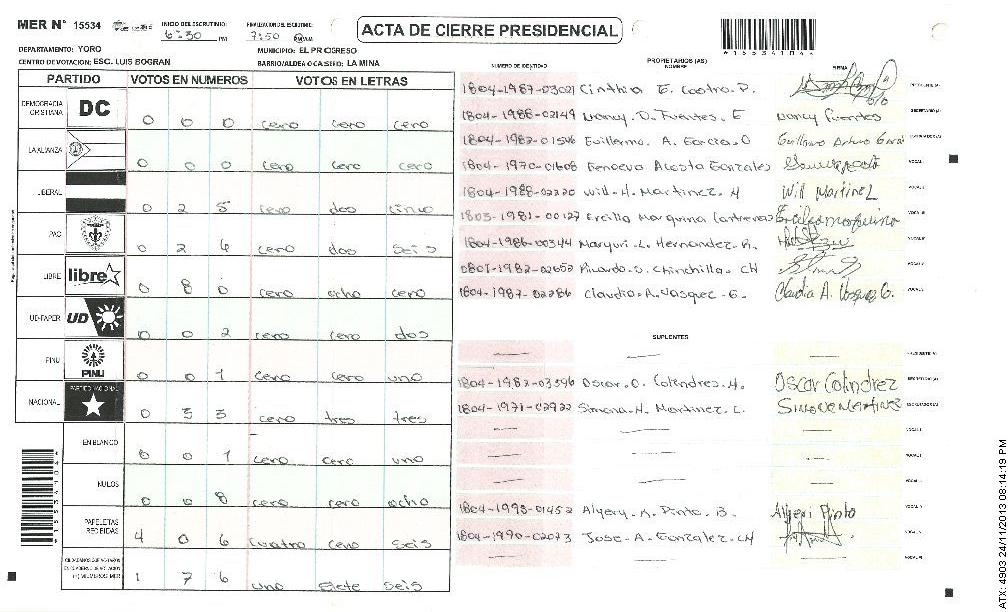 MER N° 15534
INICIO DEL ESCRUTINIO:
6:30 PM
FINALIZACION DEL ESCRUTINIO:
7:50 PM
ACTA DE CIERRE PRESIDENCIAL
4155341044
DEPARTAMENTO: YORO
MUNICIPIO: EL PROGRESO
CENTRO DE VOTACION: ESC. LUIS BOGRAN
BARRIO/ALDEA O CASERIO: LA MINA
PARTIDO VOTOS EN NUMEROS VOTOS EN LETRAS
DEMOCRACIA CRISTIANA DC 0 0 0 cero cero cero
LA ALIANZA 0 0 0 cero cero cero
LIBERAL 0 2 5 cero dos cinco
PAC 0 2 6 cero dos seis
LIBRE libre 0 8 0 cero ocho cero
UD-FAPER UD 0 0 2 cero cero dos
PINU PINU 0 0 1 cero cero uno
NACIONAL PARTIDO NACIONAL 0 3 3 cero tres tres
EN BLANCO 0 0 1 cero cero uno
NULOS 0 0 8 cero cero ocho
PAPELETAS RECIBIDAS 4 0 6 cuatro cero seis
1 7 6 uno siete seis
NUMERO DE IDENTIDAD PROPIETARIOS (AS) NOMBRE FIRMA
1804-1987-03021 Cinthia E. Castro. P. PRESIDENTE(A)
1804-1988-02149 Nancy. D. Fuentes. E Nancy Fuentes SECRETARIO(A)
1804-1982-01546 Guillermo. A. Garcia. O Guillermo Arturo Garcia ESCRUTADOR(A)
1804-1970-01608 Fenoeva Acosta Gonzales VOCAL I
1804-1988-02220 Will. H. Martinez. H Will Martinez VOCAL II
1803-1981-00127 Ercilia Marquina Contreras VOCAL III
1804-1986-00344 Maryuri. L. Hernandez. R. VOCAL IV
0801-1982-02652 Ricardo. J. Chinchilla. CH VOCAL V
1804-1987-02286 Claudia. A. Vasquez. G. Claudia A. Vasquez G. VOCAL VI
SUPLENTES
PRESIDENTE(A)
1804-1982-03596 Oscar. O. Colindres. H. Oscar Colindrez SECRETARIO(A)
1804-1971-02922 Simona. H. Martinez. L. Simona Martinez ESCRUTADOR(A)
VOCAL I
VOCAL II
VOCAL III
1804-1993-01452 Algery. K. Pinto. B. Algeri Pinto
1804-1990-02073 Jose. A. Gonzalez. CH
VOCAL VI
ATX: 4903 24/11/2013 08:14:19 PM